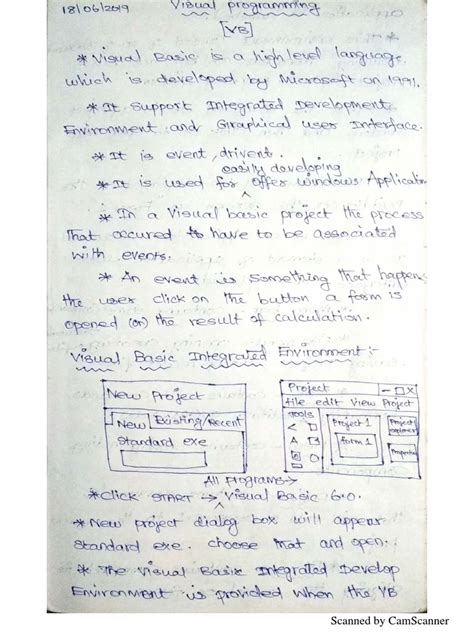 18/06/2019 Visual programming
[VB]
* Visual Basic is a high level language
which is developed by Microsoft on 1991.
* It support Integrated Development
Environment and Graphical user Interface.
* It is event drivent.
easily developing
* It is used for offer windows Application
* In a Visual basic project the process
That occured to have to be associated
with events.
* An event is something that happen
the user click on the button a form is
opened (or) the result of calculation.
Visual Basic Integrated Environment:-
New Project
New Existing/Recent
Standard exe
Project - □ X
file edit View Project
Tools
A
Project 1
form 1
Project explorer
Properties
All Programs→
* Click START → Visual Basic 6.0.
* New project dialog box will appear
standard exe. choose that and open.
* The Visual Basic Integrated Develop
Environment is provided when the VB
Scanned by CamScanner